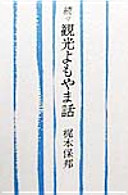 続々
観光よもやま話
梶本保邦